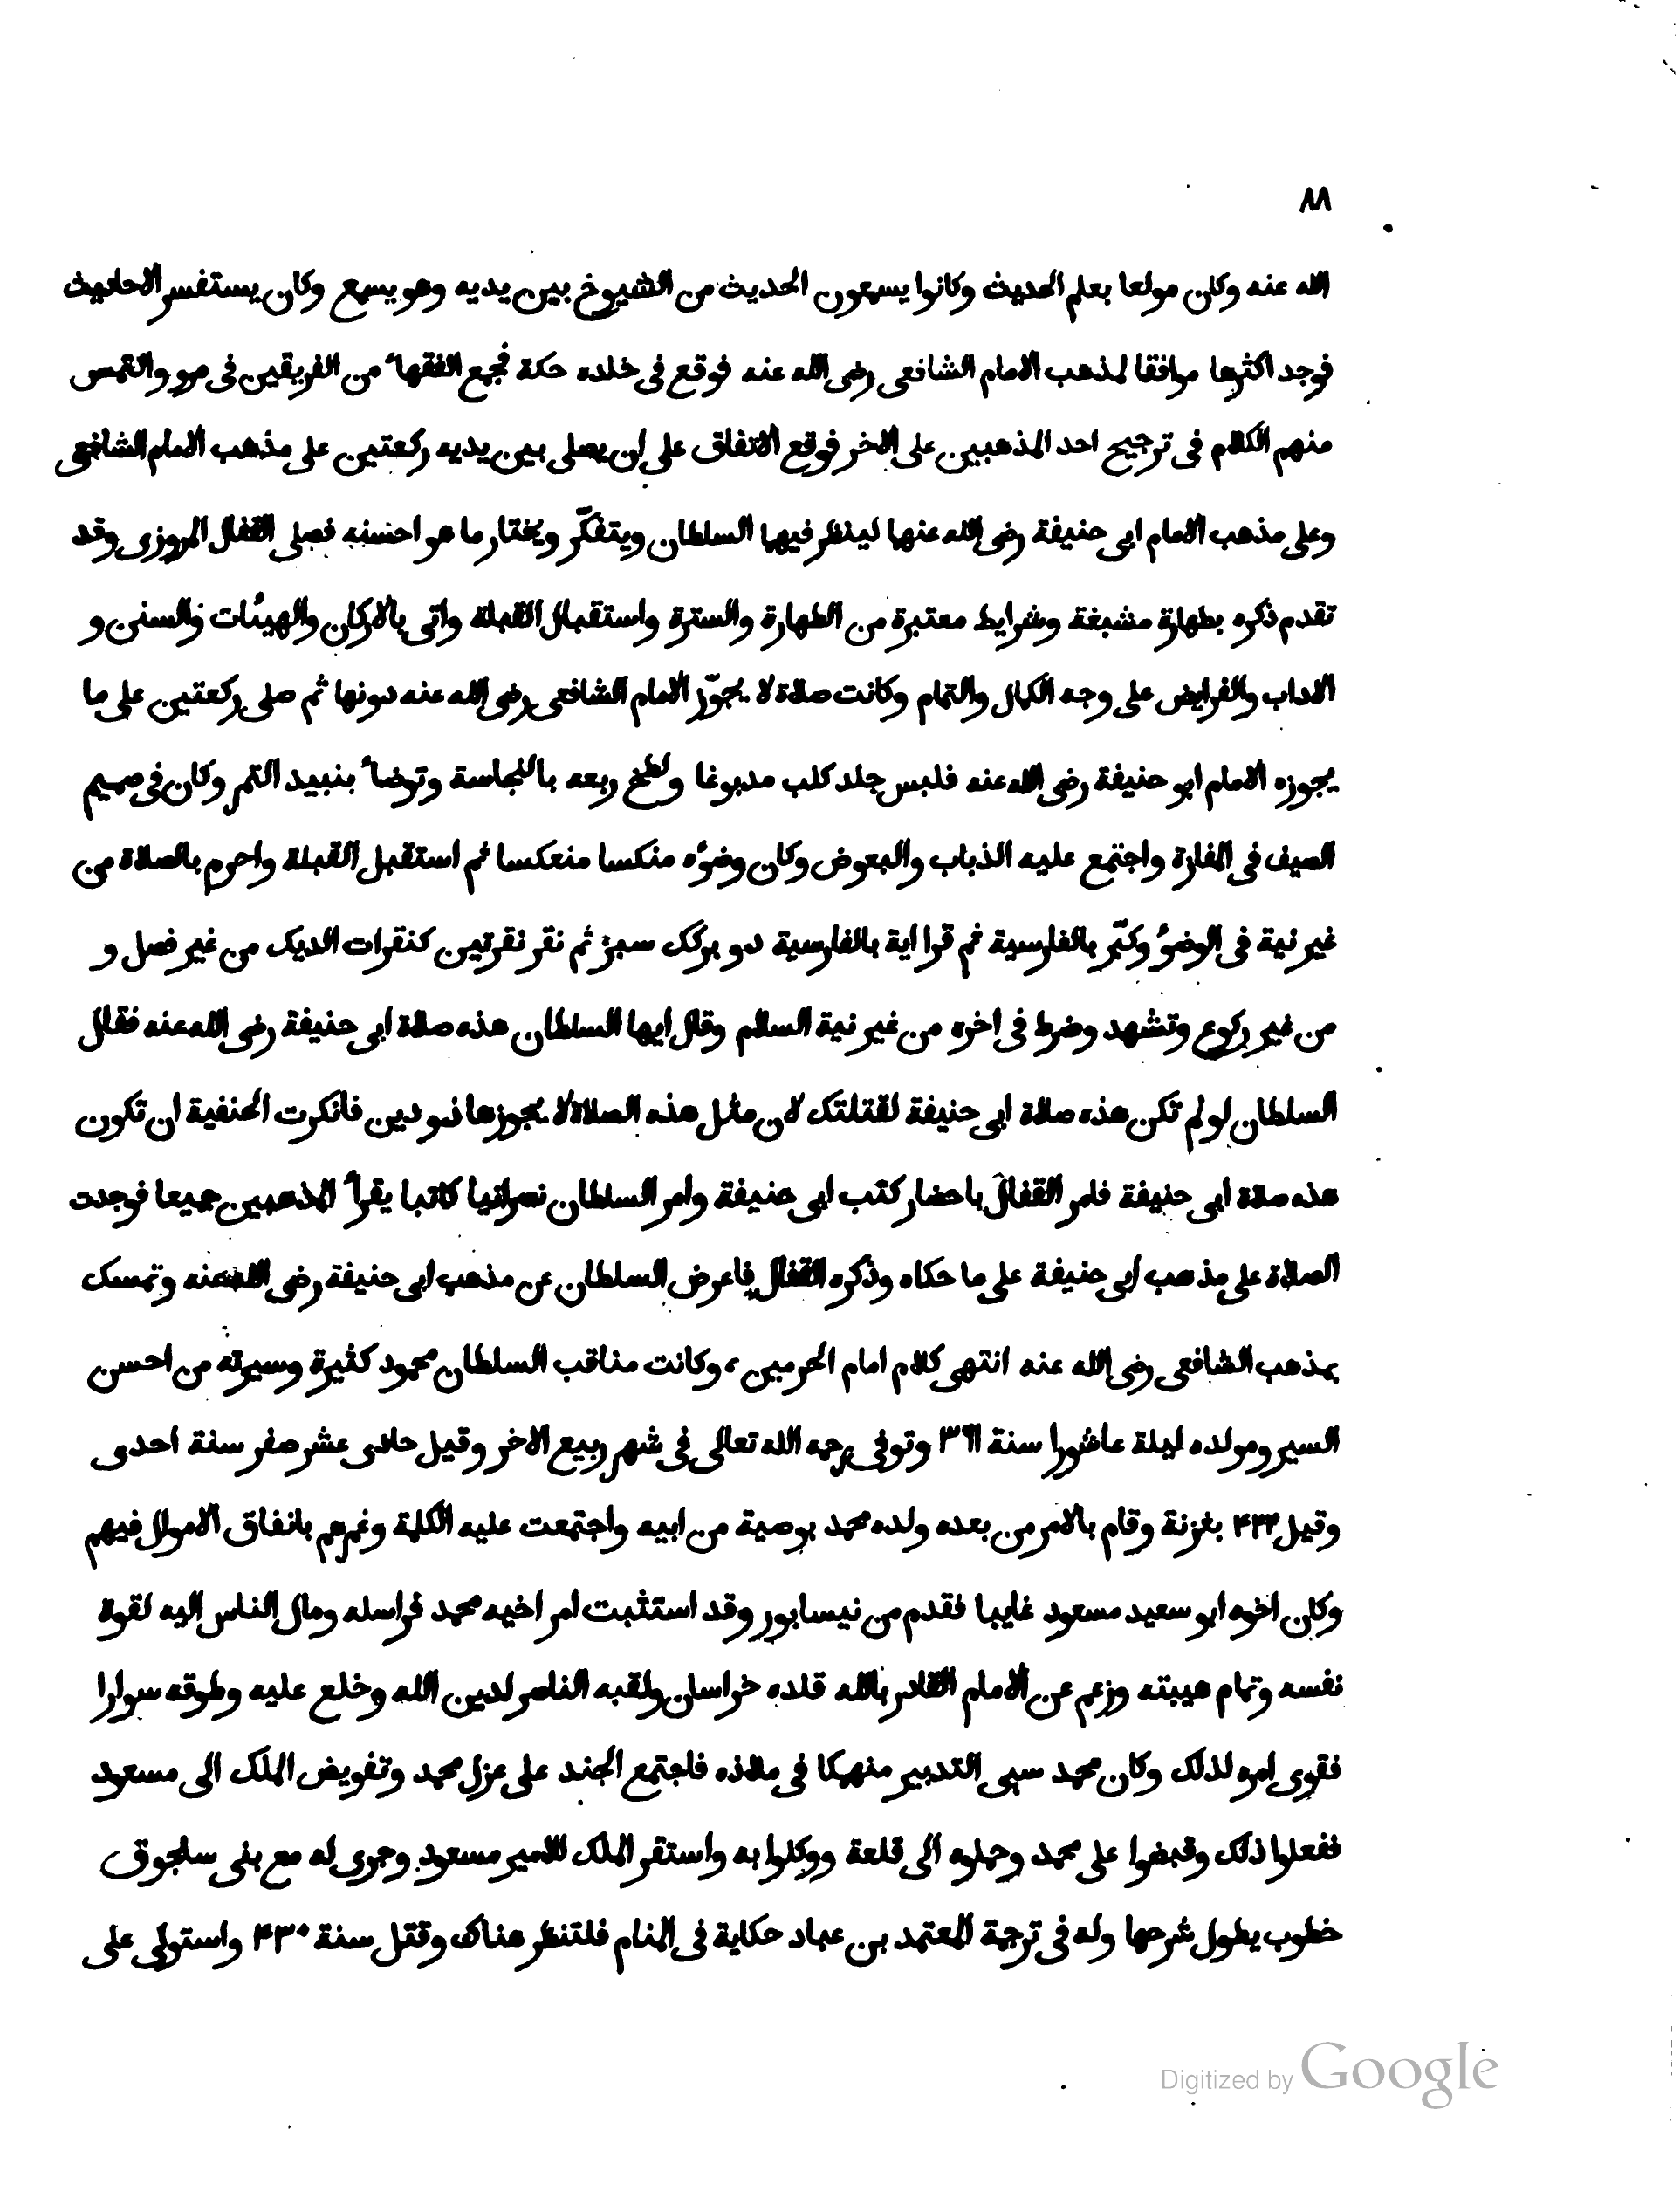 ٨٨
الله عنه وكان مولعا بعلم الحديث وكانوا يسمعون الحديث من الشيوخ بين يديه وهو يسمع وكان يستفسر الاحاديث
فوجد اكثرها موافقا لمذهب الامام الشافعى رضى الله عنه فوقع فى خلده حكة فجمع الفقهاء من الفريقين فى مرو والتمس
منهم الكلام فى ترجيح احد المذهبين على الاخر فوقع الاتفاق على ان يصلى بين يديه ركعتين على مذهب الامام الشافعى
وعلى مذهب الامام ابى حنيفة رضى الله عنهما لينظر فيهما السلطان ويتفكّر ويختار ما هو احسنه فصلى القفال المروزى وقد
تقدم ذكره بطهارة مشبغة وشرايط معتبرة من الطهارة والسترة واستقبال القبلة واتى بالاركان والهيئات والسنن و
الاداب والفرايض على وجه الكمال والتمام وكانت صلاة لا يجوّز الامام الشافعى رضى الله عنه دونها ثم صلى ركعتين على ما
يجوزه الامام ابو حنيفة رضى الله عنه فلبس جلد كلب مدبوغا ولطخ ربعه بالنجاسة وتوضأ بنبيد التمر وكان فى صميم
الصيف فى المفازة واجتمع عليه الذباب والبعوض وكان وضوءه منكسا منعكسا ثم استقبل القبلة واحرم بالصلاة من
غير نية فى الوضوء وكبّر بالفارسية ثم قرا اية بالفارسية دو بركك سبز ثم نقر نقرتين كنقرات الديك من غير فصل و
من غير ركوع وتشهد وضرط فى اخره من غير نية السلام وقال ايها السلطان هذه صلاة ابى حنيفة رضى الله عنه فقال
السلطان لو لم تكن هذه صلاة ابى حنيفة لقتلتك لان مثل هذه الصلاة لا يجوزها ذو دين فانكرت الحنفية ان تكون
هذه صلاة ابى حنيفة فامر القفال باحضار كتب ابى حنيفة وامر السلطان نصرانيا كاتبا يقرأ المذهبين جميعا فوجدت
الصلاة على مذهب ابى حنيفة على ما حكاه وذكره القفال فاعرض السلطان عن مذهب ابى حنيفة رضى الله عنه وتمسك
بمذهب الشافعى رضى الله عنه انتهى كلام امام الحرمين، وكانت مناقب السلطان محمود كثيرة وسيرته من احسن
السير ومولده ليلة عاشورا سنة ٣٦١ وتوفى رحمه الله تعالى فى شهر ربيع الاخر وقيل حادى عشر صفر سنة احدى
وقيل ۴۲۲ بغزنة وقام بالامر من بعده ولده محمد بوصية من ابيه واجتمعت عليه الكلمة وغمرهم بانفاق الاموال فيهم
وكان اخوه ابو سعيد مسعود غايبا فقدم من نيسابور وقد استثبت امر اخيه محمد فراسله ومال الناس اليه لقوة
نفسه وتمام هيبته وزعم عن الامام القادر بالله قلده خراسان ولقبه الناصر لدين الله وخلع عليه وطوقه سوارا
فقوى امره لذلك وكان محمد سيى التدبير منهمكا فى ملاذه فاجتمع الجند على عزل محمد وتفويض الملك الى مسعود
ففعلوا ذلك وقبضوا على محمد وحملوه الى قلعة ووكلوا به واستقر الملك للامير مسعود وجرى له مع بنى سلجوق
خطوب يطول شرحها وله فى ترجمة المعتمد بن عباد حكاية فى المنام فلتنظر هناك وقتل سنة ۴۳۰ واستولى على
Digitized by Google